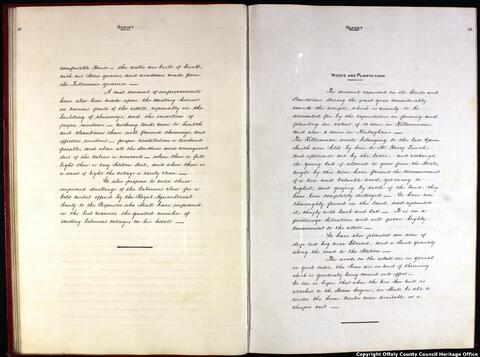 REPORT
comfortable House — the walls are built of brick,
with cut stone quoins and windows made from
the Tullamore quarries —
A vast amount of improvements
have also been made upon the existing houses
in various parts of the estate, especially in the
building of chimneys, and the insertion of
proper windows — nothing tends more to health
and cleanliness than well formed chimneys, and
effective windows — proper ventilation is rendered
possible, and above all the shutters and consequent
dirt of the cabins is removed — when there is full
light there is very seldom dirt, and when there is
a want of light the cottage is rarely clean —
We also propose to enter these
improved dwellings of the labourers class for a
Gold medal offered by the Royal Agricultural
Society to the Proprietor who shall have improved
in the best manner the greatest number of
existing labourers cottages on his estate —
REPORT
WOODS AND PLANTATIONS
The amount expended on the Woods and
Plantations during the past year considerably
exceeds the receipts, which is mainly to be
accounted for by the expenditure on fencing and
planting an extent of 12 acres in Killeenmore
and also a screen in
The Killeenmore woods belonging to the late Owen
Smith were sold by him to Mr Henry French
and afterwards cut by the latter, and although
the young but if allowed to grow from the stools,
might by this time have formed the commencement
of a new and valuable wood, yet owing to
neglect, and grazing by cattle of the land, they
have been completely destroyed — We have now
thoroughly fenced in the land, and replanted
it, chiefly with Larch and Oak — It is in a
picturesque situation, and will prove highly
ornamental to the estate —
We have also planted an acre of
deep red bog near Clonad, and a small quantity
along the road to the Station —
The woods on the estate are in general
in good order, the Firs are in need of thinning
which is gradually being carried into effect —
We are in hopes that when the new Saw mill is
attached to the Steam Engine, we shall be able to
render the home timber more available at a
cheaper cost —
Copyright Offaly County Council Heritage Office